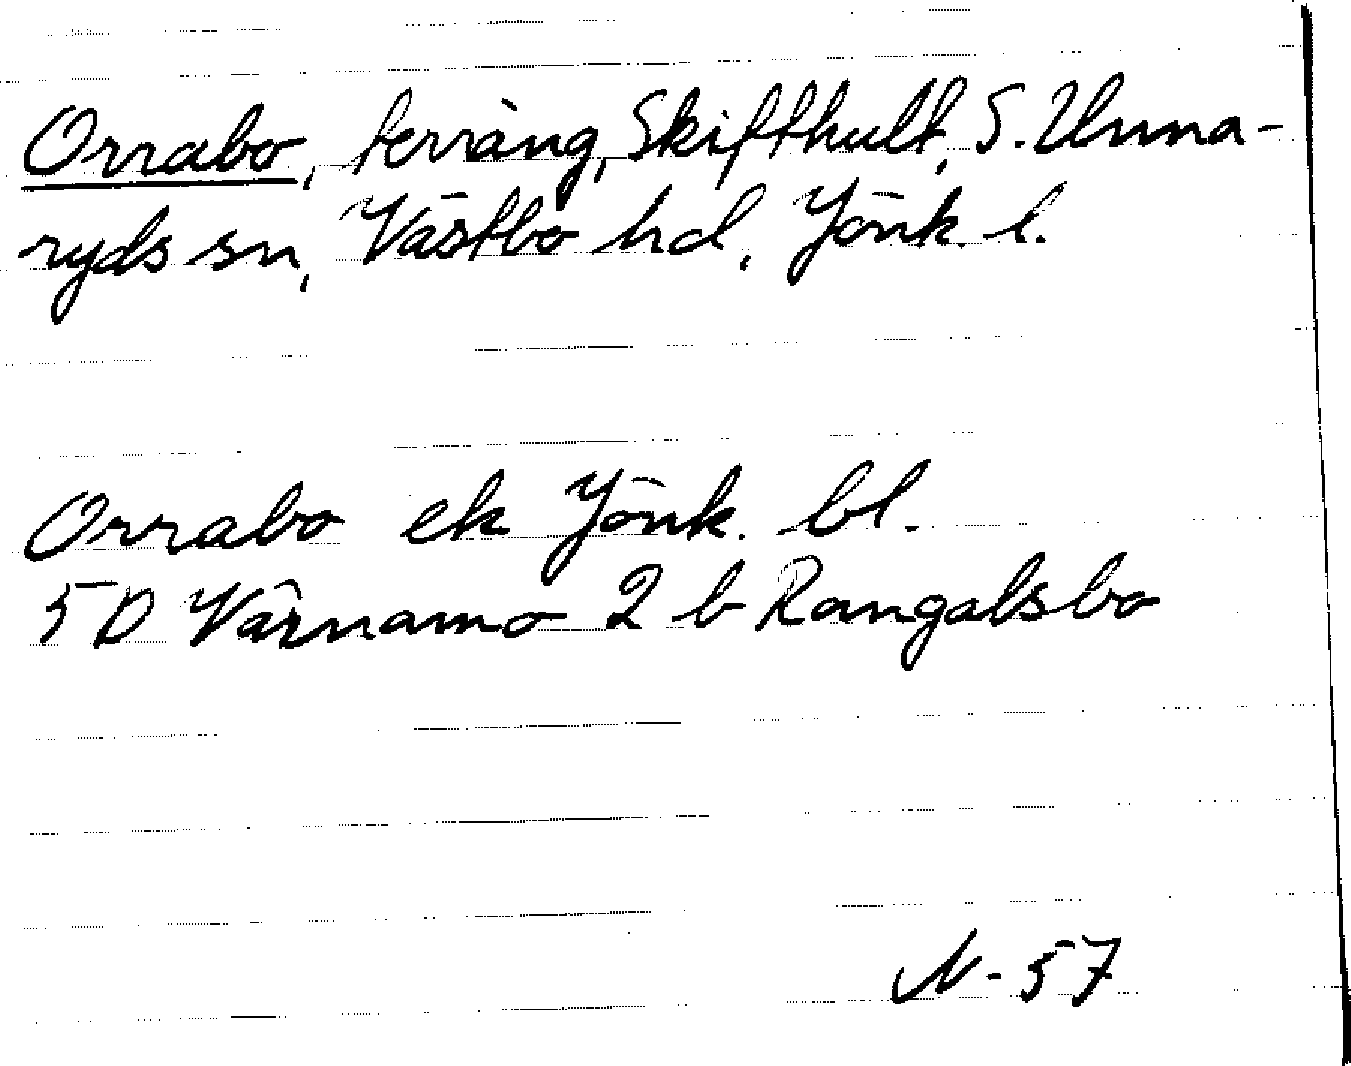 Orrabo, terräng, Skifthult, S. Unna-
ryds sn, Västbo hd, Jönk. l.
Orrabo ek Jönk. bl.
5D Värnamo 2 b Rangalsbo
N-57